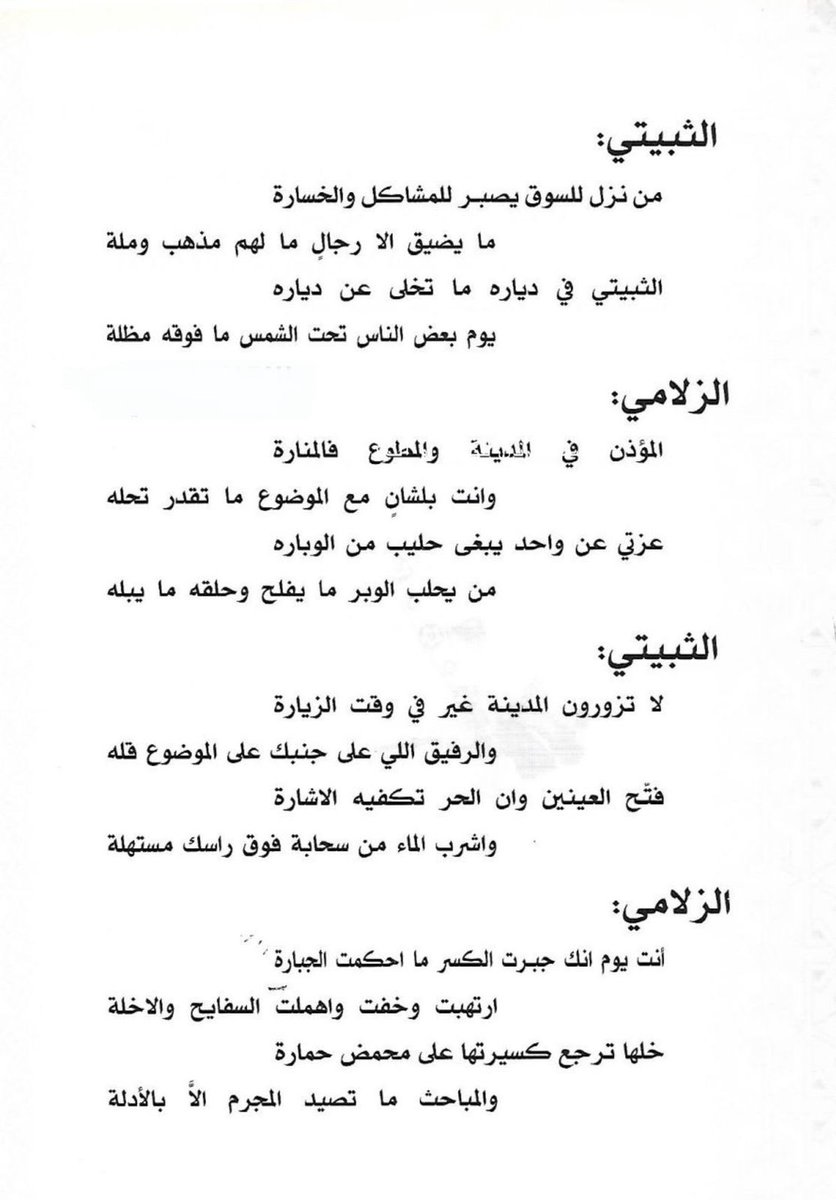 الثبيتي:
من نزل للسوق يصبر للمشاكل والخسارة
ما يضيق الا رجالٍ ما لهم مذهب وملة
الثبيتي في دياره ما تخلى عن دياره
يوم بعض الناس تحت الشمس ما فوقه مظلة
الزلامي:
المؤذن في المدينة والمطوع فالمنارة
وانت بلشانٍ مع الموضوع ما تقدر تحله
عزتي عن واحد يبغى حليب من الوباره
من يحلب الوبر ما يفلح وحلقه ما يبله
الثبيتي:
لا تزورون المدينة غير في وقت الزيارة
والرفيق اللي على جنبك على الموضوع قله
فتّح العينين وان الحر تكفيه الاشارة
واشرب الماء من سحابة فوق راسك مستهلة
الزلامي:
أنت يوم انك جبرت الكسر ما احكمت الجبارة
ارتهبت وخفت واهملت السفايح والاخلة
خلها ترجع كسيرتها على محمض حمارة
والمباحث ما تصيد المجرم الاَّ بالأدلة